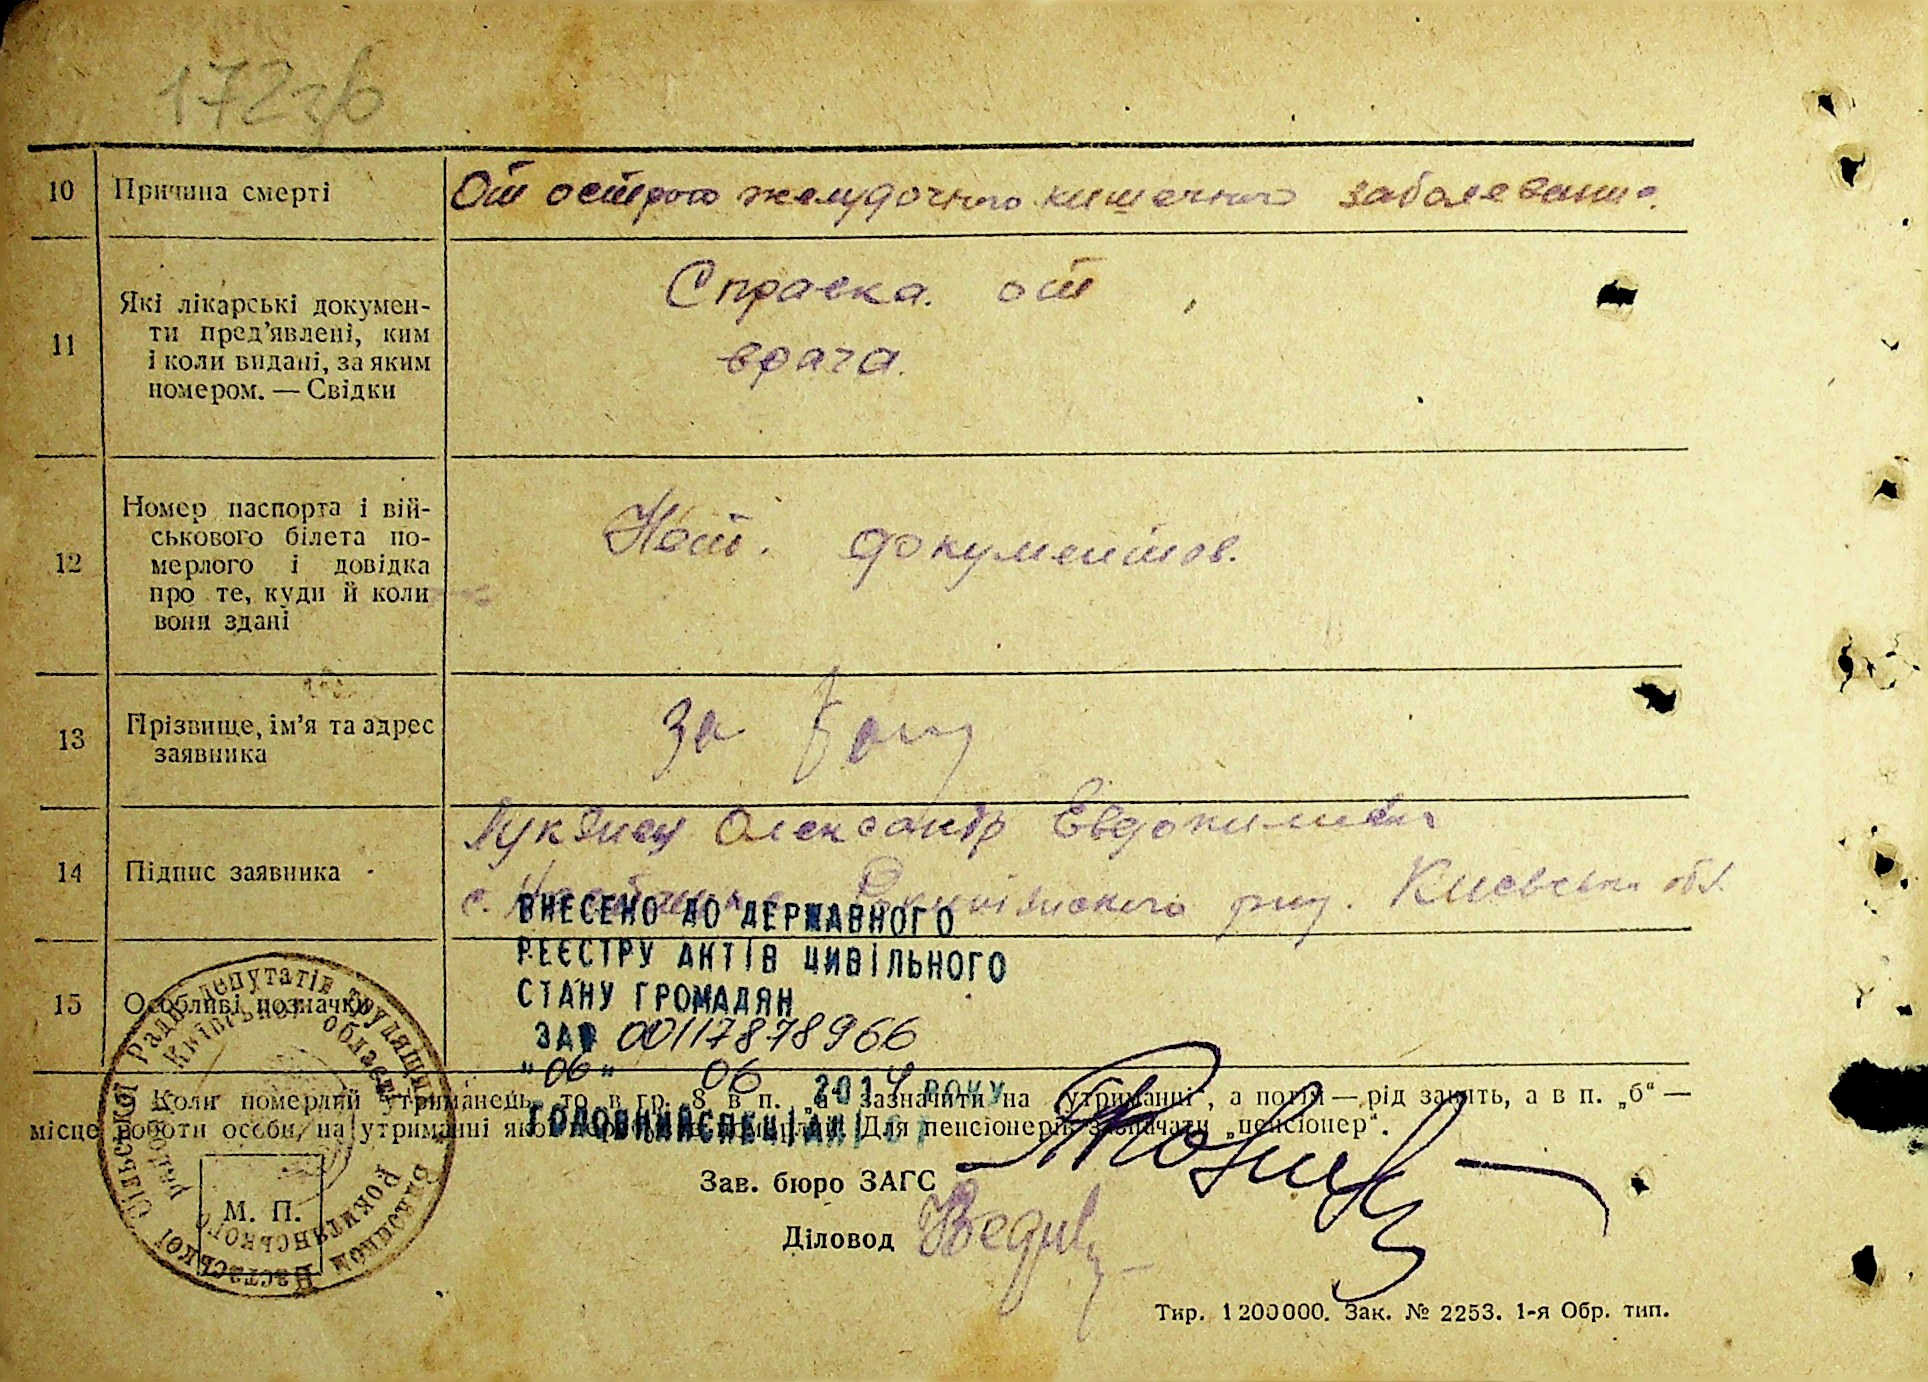 172зв
10 Причина смерті От острого желудочного кишечного заболевания.
11 Які лікарські докумен-
ти пред’явлені, ким
і коли видані, за яким
номером. — Свідки
Справка. от
врача.
12 Номер паспорта і вій-
ськового білета по-
мерлого і довідка
про те, куди й коли
вони здані
Нет. документов.
13 Прізвище, ім’я та адрес
заявника
за
14 Підпис заявника
Олександр Евдокимович
с. Киевской обл.
15 Особливі позначки
ВНЕСЕНО ДО ДЕРЖАВНОГО
РЕЄСТРУ АКТІВ ЦИВІЛЬНОГО
СТАНУ ГРОМАДЯН
ЗА № 00117878966
"06" 06 2014 РОКУ
ГОЛОВНИЙ СПЕЦІАЛІСТ
Коли померлий утриманець, то в гр. 8 в п. „а“ зазначити на утриманні“, а потім — рід занять, а в п. „б“ —
місце роботи особи, на утриманні якої Для пенсіонерів зазначати „пенсіонер“.
Зав. бюро ЗАГС
Діловод
М. П.
Сільської Ради депутатів трудящих
Київської області
Рокитянського району
Тир. 1200000. Зак. № 2253. 1-я Обр. тип.